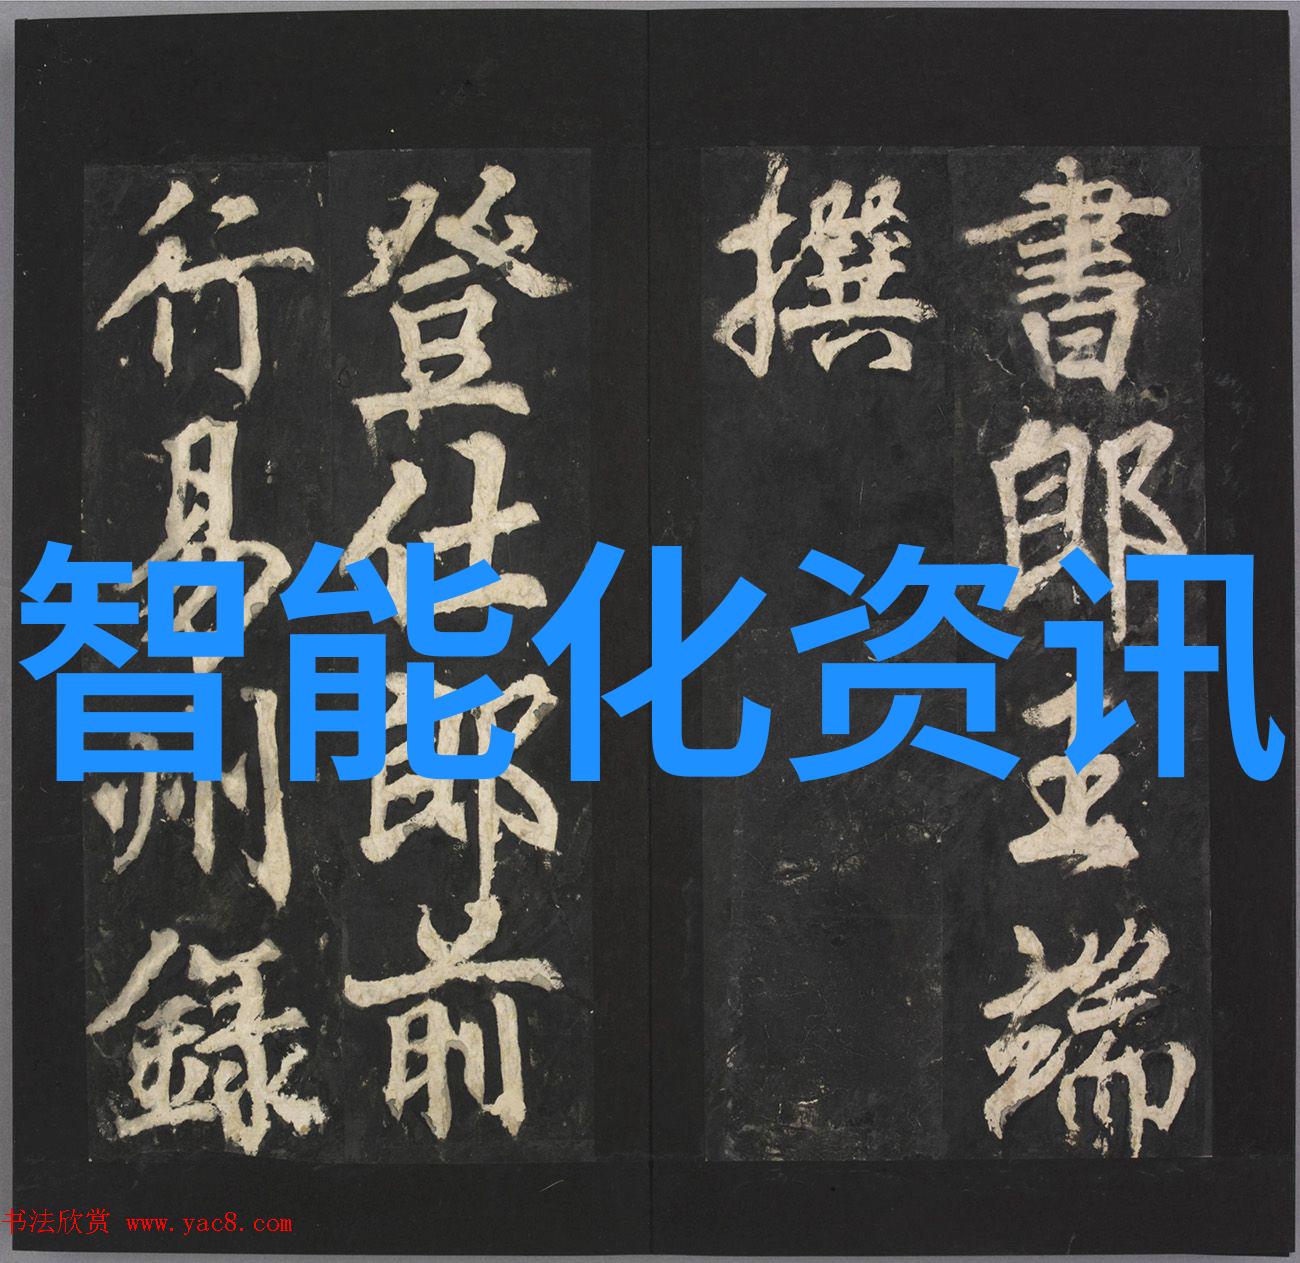 書郎王端
撰
登仕郎前
行易州録
智能化资讯
书法欣赏 www.yac8.com